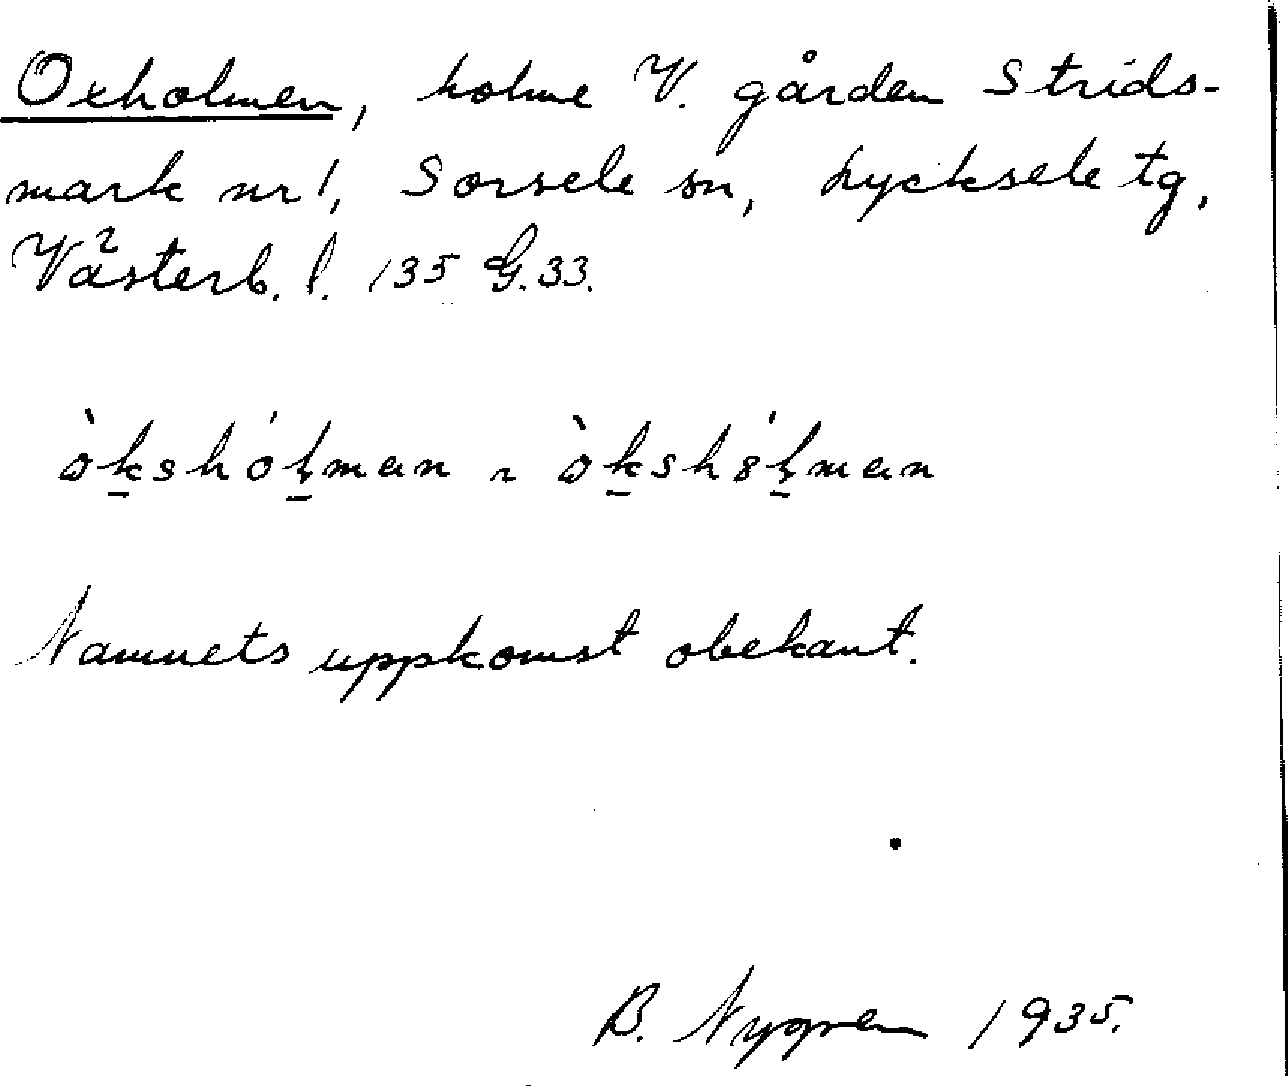 Oxholmen, holme V. gården Strids-
mark nr 1, Sorsele sn, Lycksele tg,
Västerb. l. 135 G. 33.
òk̠shóḷ̠man ~ òk̠shó̤ḷ̠man
Namnets uppkomst obekant.
B. Nygren 1935.